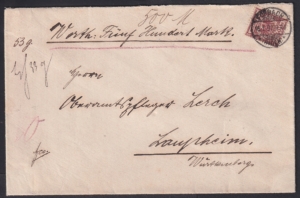 500 M
Werth: Fünf Hundert Mark.
53 g
33 g
Herrn
Oberamtspfleger Lerch
Laupheim.
Württemberg.
frei